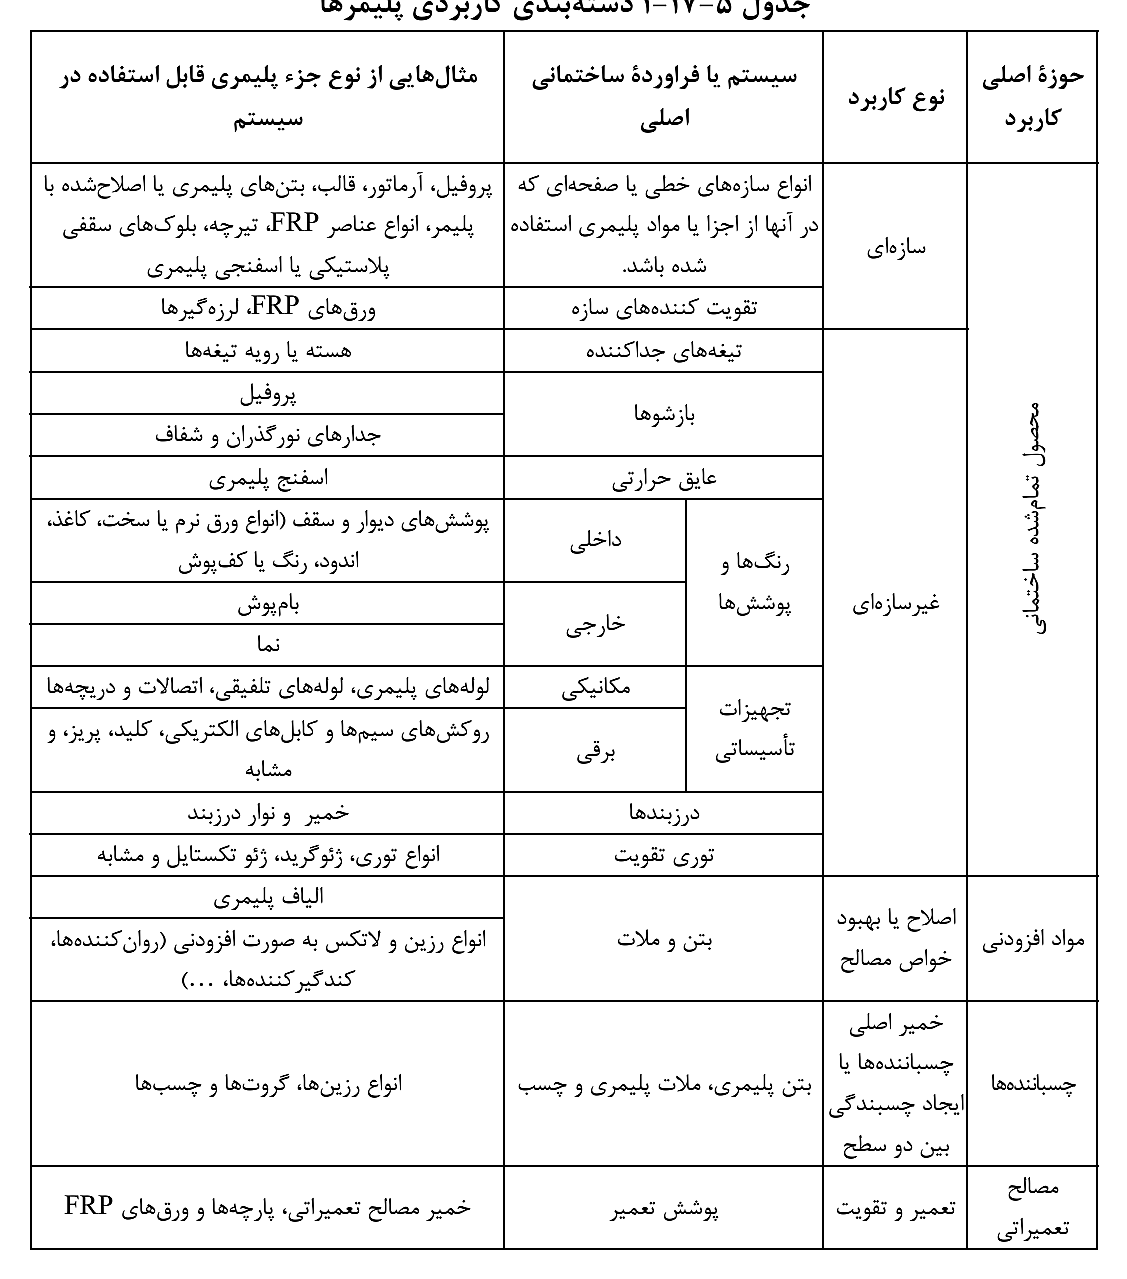 جدول ۵-۱۷-۱ دسته‌بندی کاربردی پلیمرها
حوزهٔ اصلی
کاربرد
نوع کاربرد
سیستم یا فراوردهٔ ساختمانی
اصلی
مثال‌هایی از نوع جزء پلیمری قابل استفاده در
سیستم
محصول تمام‌شده ساختمانی
سازه‌ای
انواع سازه‌های خطی یا صفحه‌ای که
در آنها از اجزا یا مواد پلیمری استفاده
شده باشد.
پروفیل، آرماتور، قالب، بتن‌های پلیمری یا اصلاح‌شده با
پلیمر، انواع عناصر FRP، تیرچه، بلوک‌های سقفی
پلاستیکی یا اسفنجی پلیمری
تقویت کننده‌های سازه
ورق‌های FRP، لرزه‌گیرها
غیرسازه‌ای
تیغه‌های جداکننده
هسته یا رویه تیغه‌ها
بازشوها
پروفیل
جدارهای نورگذران و شفاف
عایق حرارتی
اسفنج پلیمری
رنگ‌ها و
پوشش‌ها
داخلی
پوشش‌های دیوار و سقف (انواع ورق نرم یا سخت، کاغذ،
اندود، رنگ یا کف‌پوش
خارجی
بام‌پوش
نما
تجهیزات
تأسیساتی
مکانیکی
لوله‌های پلیمری، لوله‌های تلفیقی، اتصالات و دریچه‌ها
برقی
روکش‌های سیم‌ها و کابل‌های الکتریکی، کلید، پریز، و
مشابه
درزبندها
خمیر و نوار درزبند
توری تقویت
انواع توری، ژئوگرید، ژئو تکستایل و مشابه
مواد افزودنی
اصلاح یا بهبود
خواص مصالح
بتن و ملات
الیاف پلیمری
انواع رزین و لاتکس به صورت افزودنی (روان‌کننده‌ها،
کندگیرکننده‌ها، ...)
چسباننده‌ها
خمیر اصلی
چسباننده‌ها یا
ایجاد چسبندگی
بین دو سطح
بتن پلیمری، ملات پلیمری و چسب
انواع رزین‌ها، گروت‌ها و چسب‌ها
مصالح
تعمیراتی
تعمیر و تقویت
پوشش تعمیر
خمیر مصالح تعمیراتی، پارچه‌ها و ورق‌های FRP